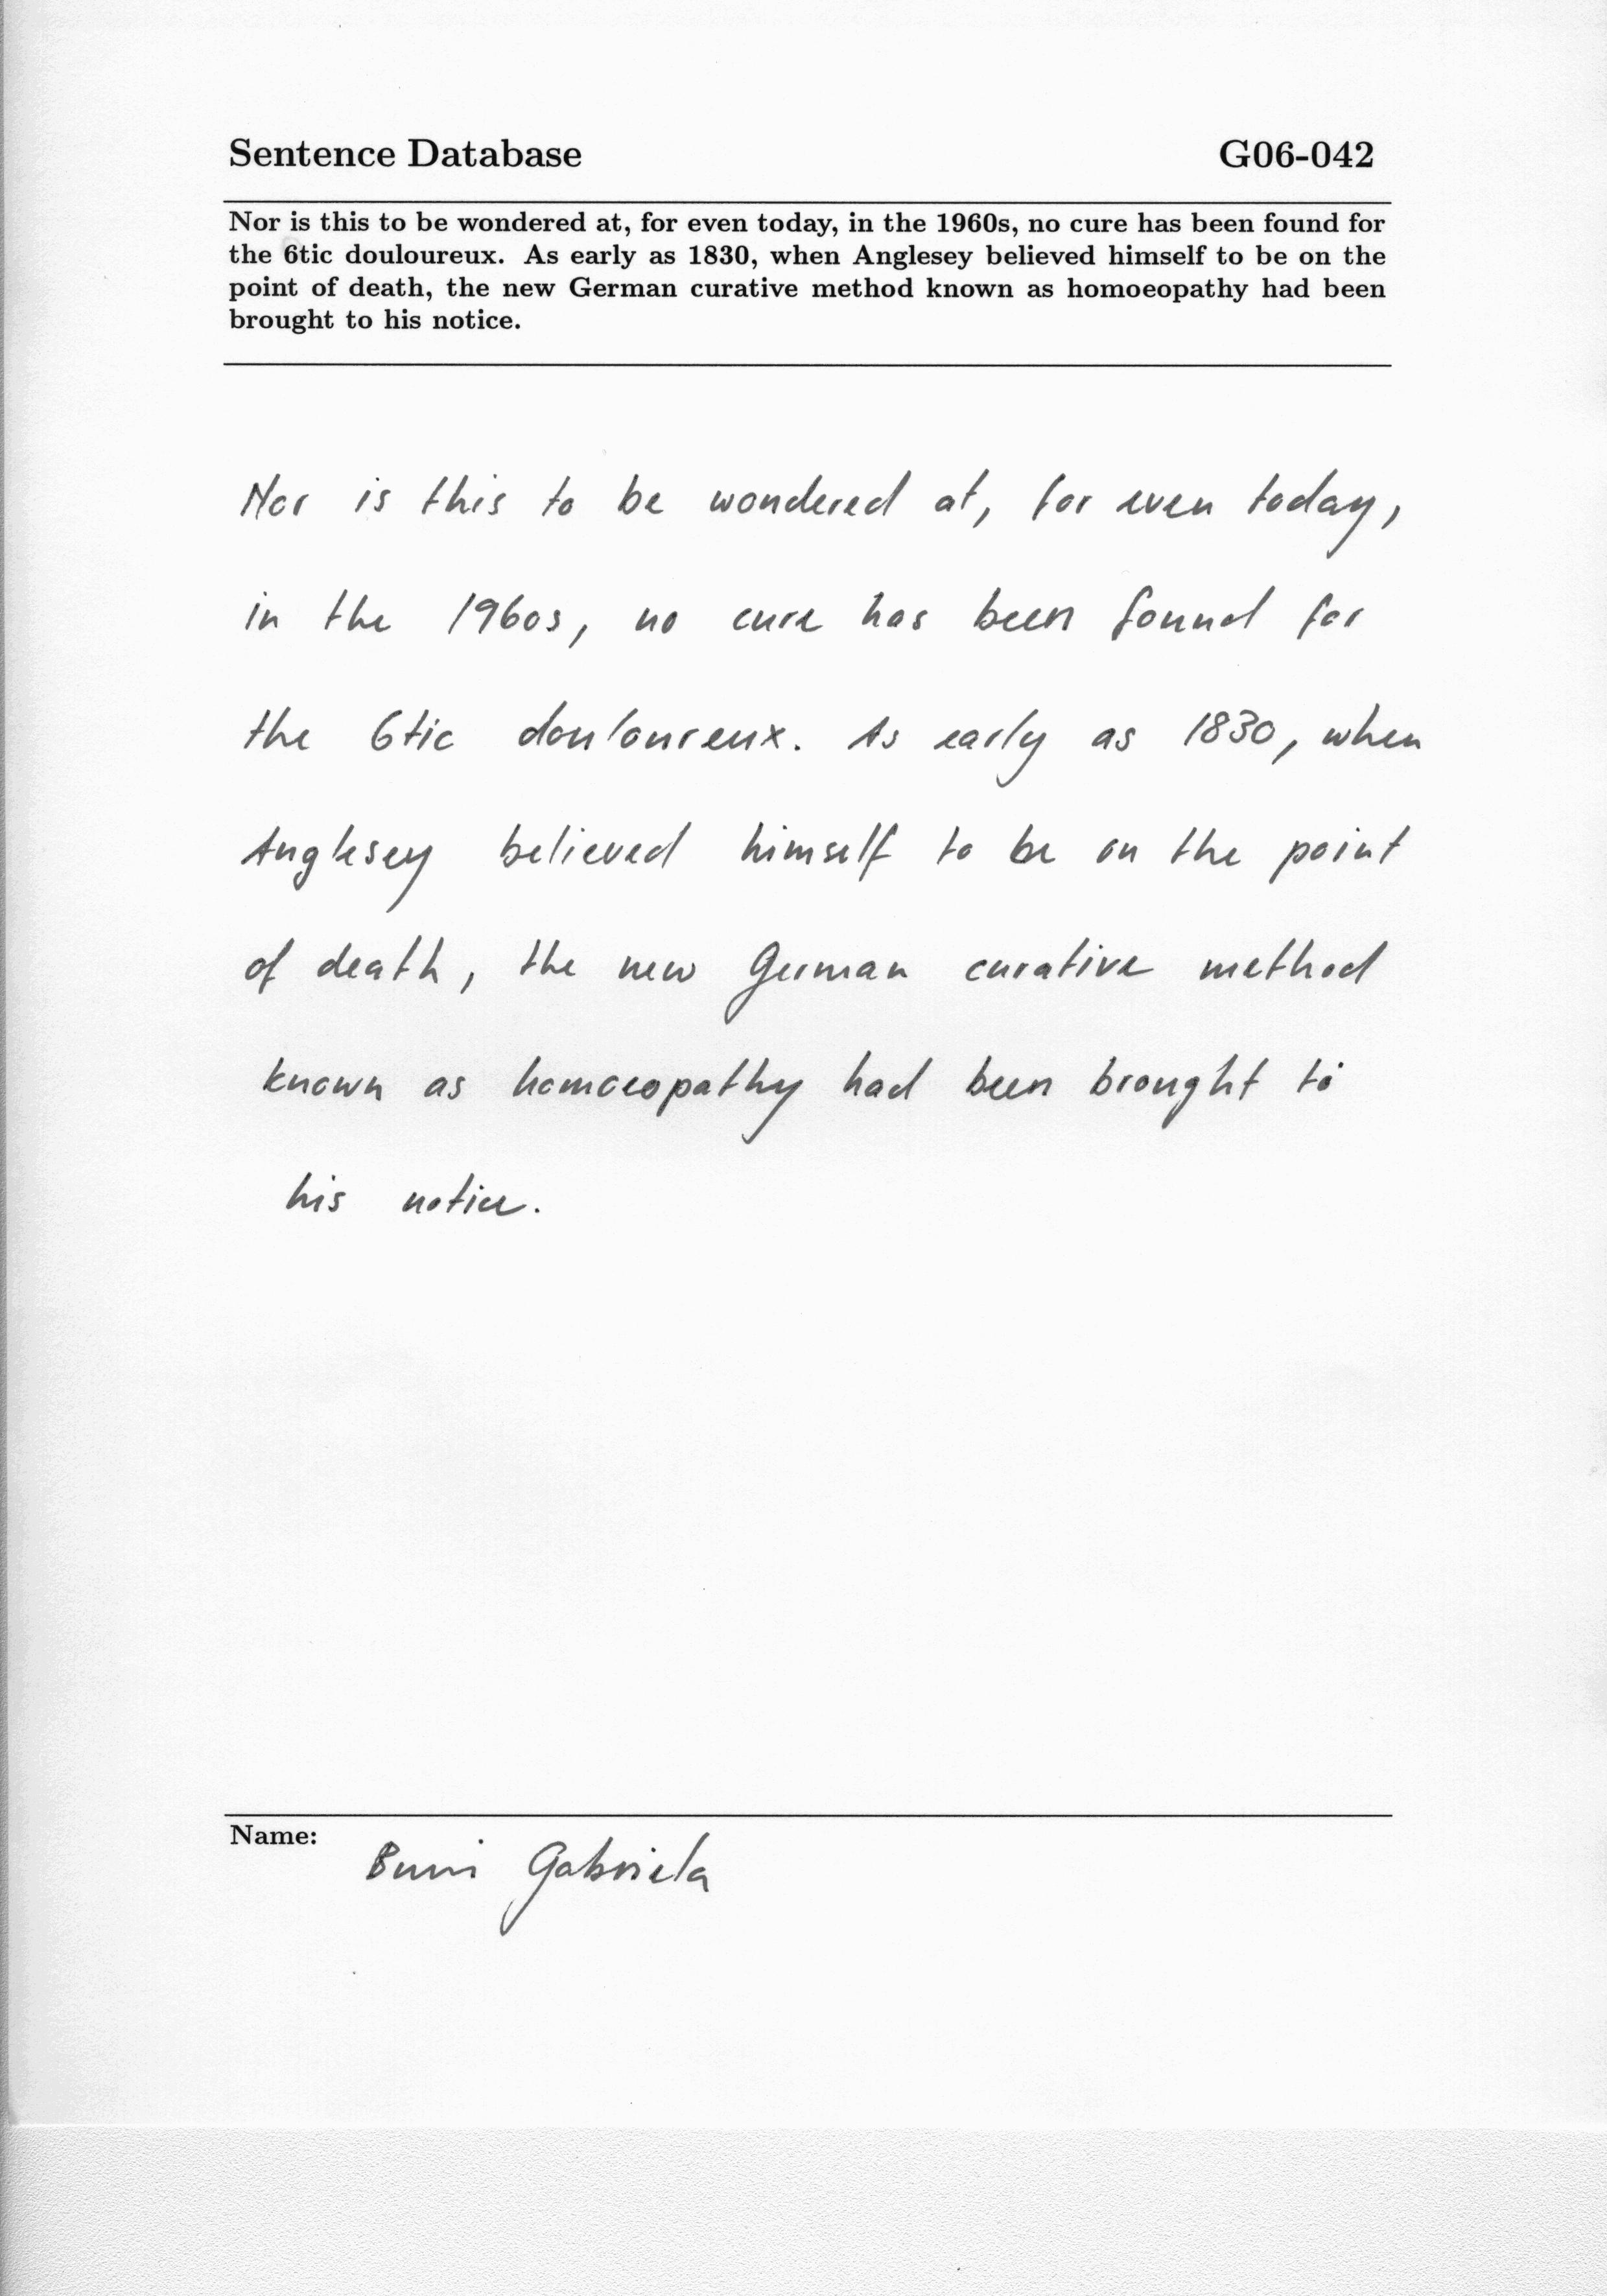 Sentence Database G06-042
Nor is this to be wondered at, for even today, in the 1960s, no cure has been found for
the 6tic douloureux. As early as 1830, when Anglesey believed himself to be on the
point of death, the new German curative method known as homoeopathy had been
brought to his notice.
Nor is this to be wondered at, for even today,
in the 1960s, no cure has been found for
the 6tic douloureux. As early as 1830, when
Anglesey believed himself to be on the point
of death, the new German curative method
known as homoeopathy had been brought to
his notice.
Name: Gabriela